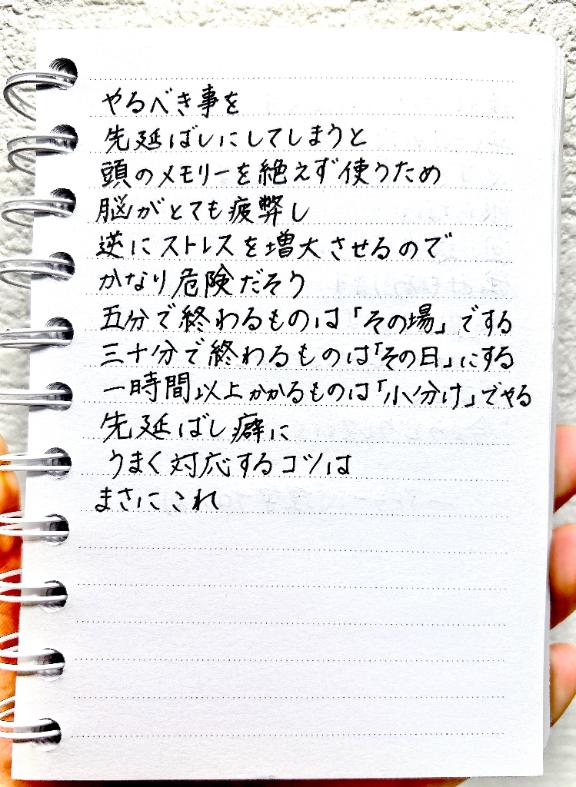 やるべき事を
先延ばしにしてしまうと
頭のメモリーを絶えず使うため
脳がとても疲弊し
逆にストレスを増大させるので
かなり危険だそう
五分で終わるものは「その場」でする
三十分で終わるものは「その日」にする
一時間以上かかるものは「小分け」でやる
先延ばし癖に
うまく対応するコツは
まさにこれ